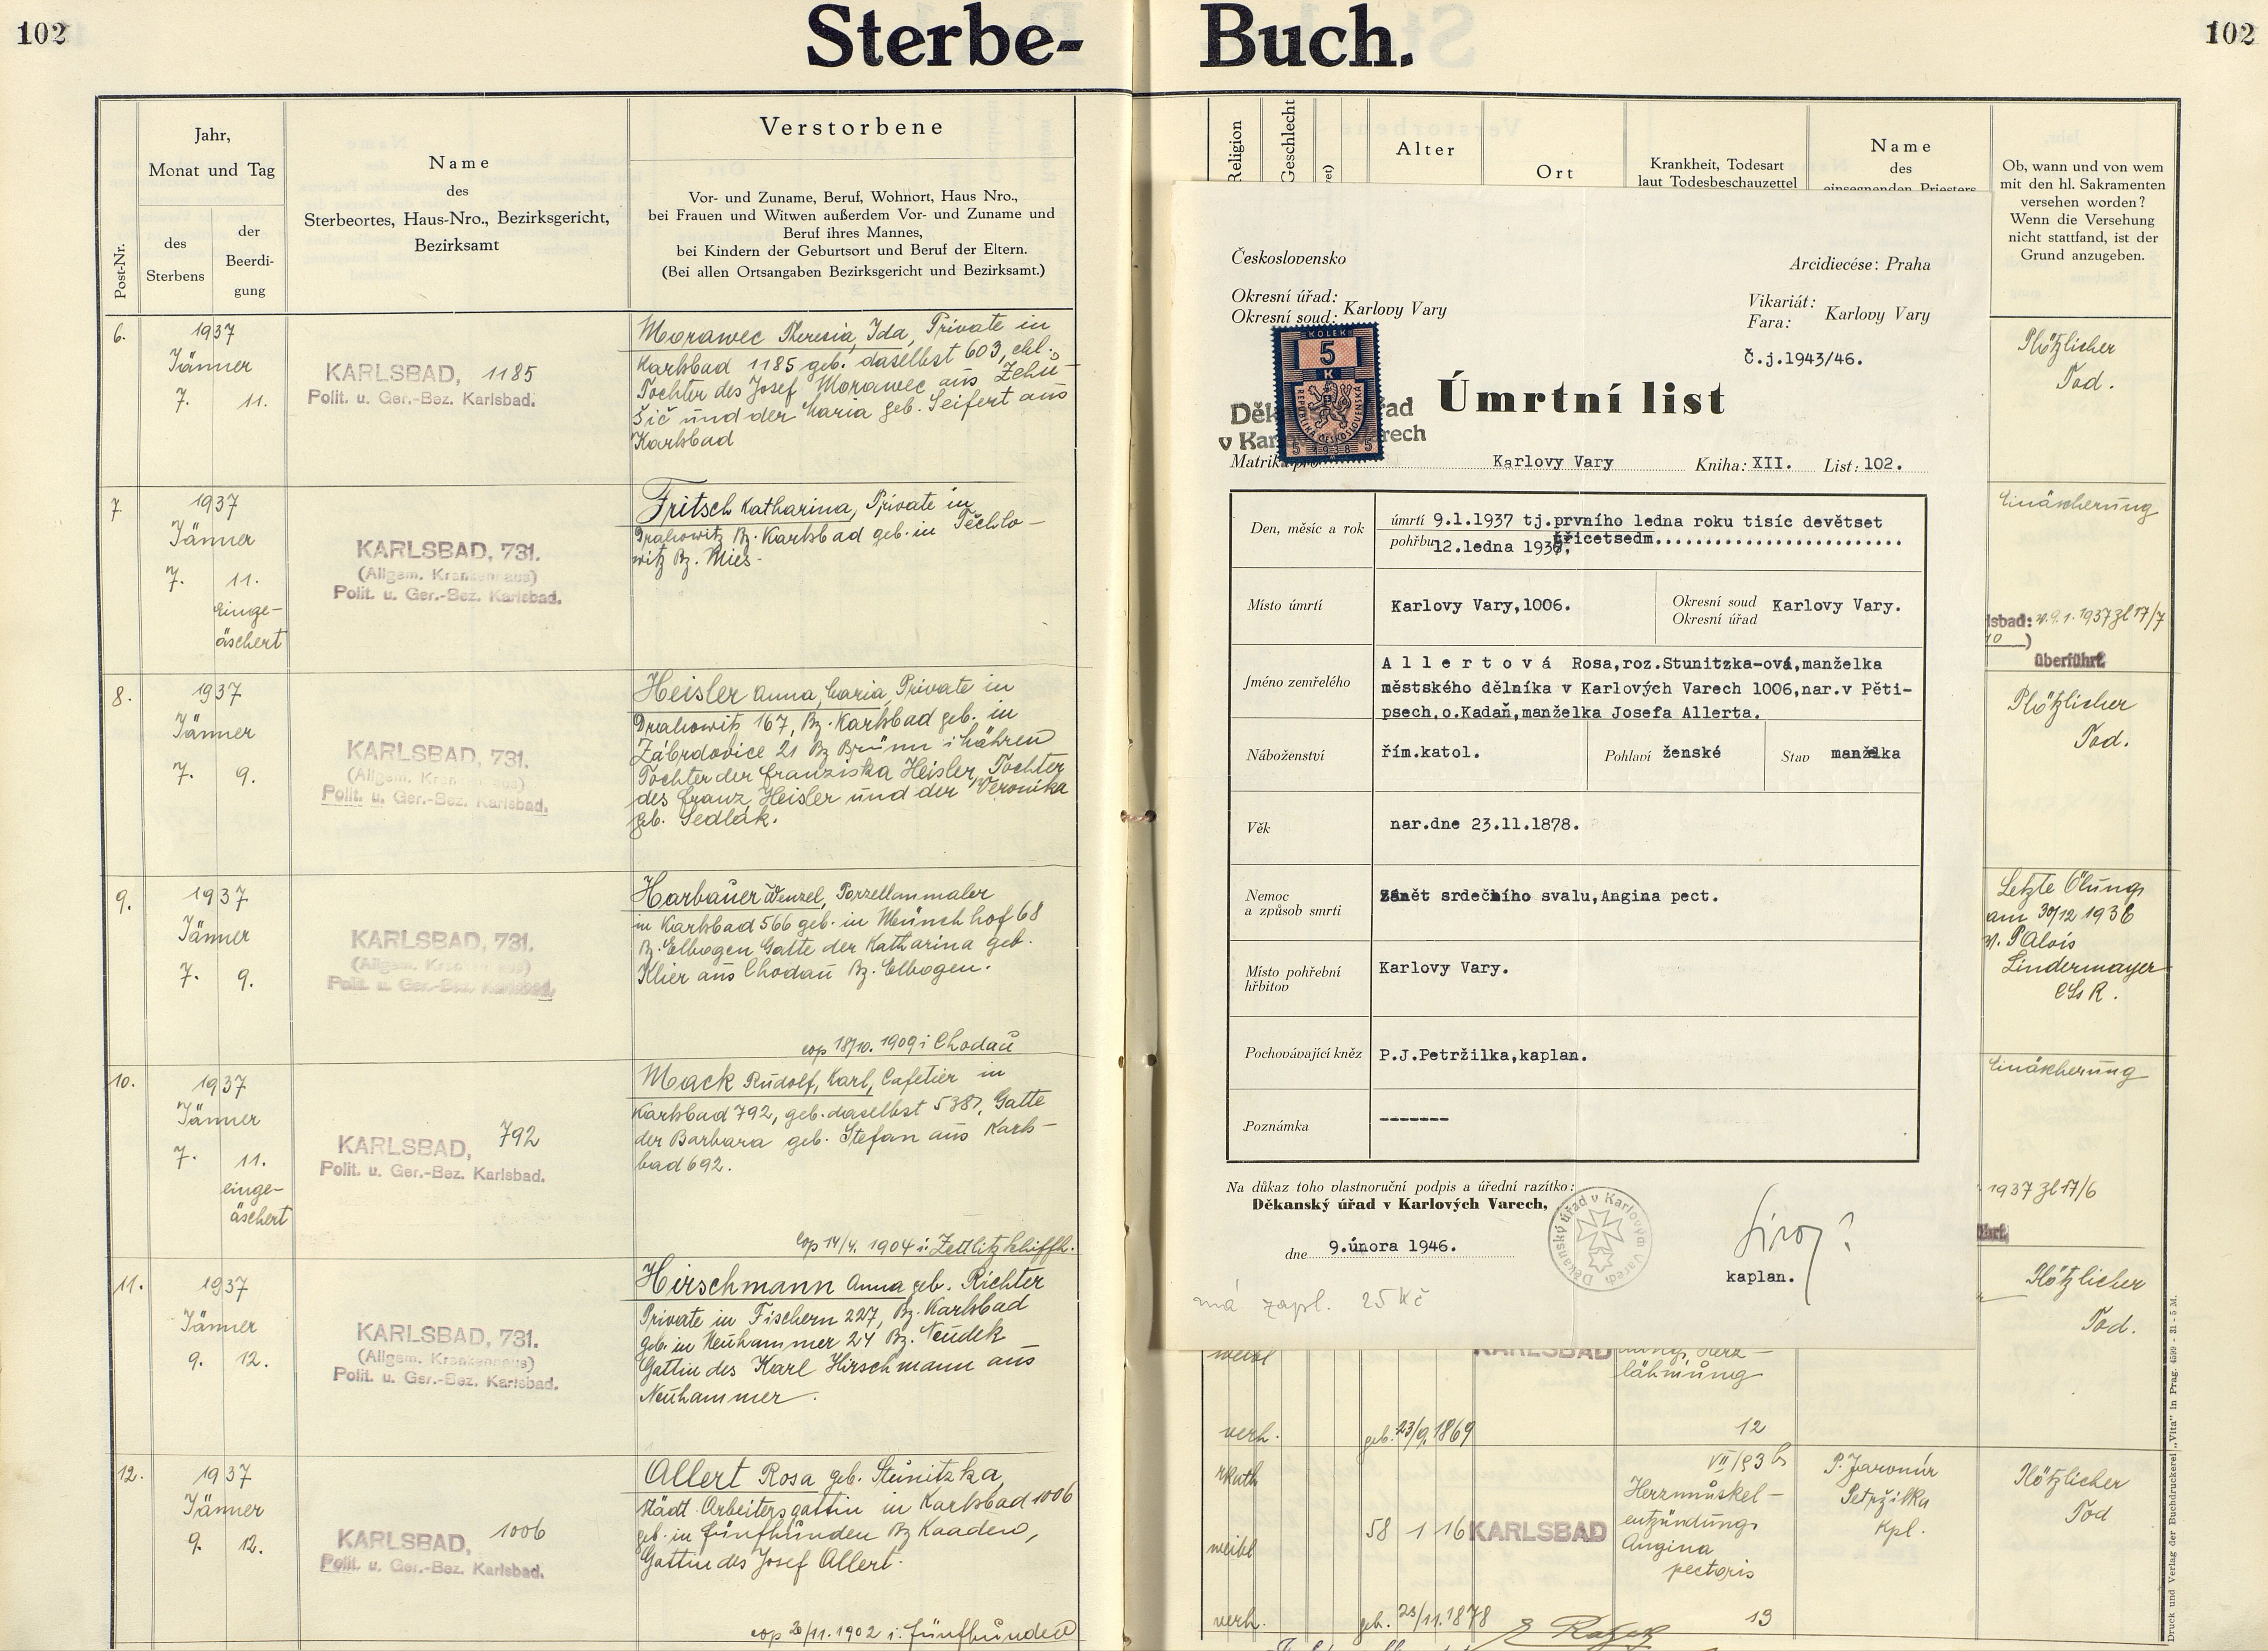 102
Sterbe-
Buch.
102
Post-Nr.
Jahr,
Monat und Tag
des
Sterbens
der
Beerdi-
gung
Name
des
Sterbeortes, Haus-Nro., Bezirksgericht,
Bezirksamt
Verstorbene
Vor- und Zuname, Beruf, Wohnort, Haus Nro.,
bei Frauen und Witwen außerdem Vor- und Zuname und
Beruf ihres Mannes,
bei Kindern der Geburtsort und Beruf der Eltern.
(Bei allen Ortsangaben Bezirksgericht und Bezirksamt.)
6.
1937
Jänner
7. 11.
KARLSBAD, 1185
Polit. u. Ger.-Bez. Karlsbad.
Morawec Theresia, Ida, Private in
Karlsbad 1185 geb. daselbst 603, ehl.
Tochter des Josef Morawec aus Žehu-
šič und der Maria geb. Seifert aus
Karlsbad
7
1937
Jänner
7. 11.
einge-
äschert
KARLSBAD, 731.
(Allgem. Krankenhaus)
Polit. u. Ger.-Bez. Karlsbad.
Fritsch Katharina, Private in
Drahowitz Bz. Karlsbad geb. in Techlo-
witz Bz. Mies.
8.
1937
Jänner
7. 9.
KARLSBAD, 731.
(Allgem. Krankenhaus)
Polit. u. Ger.-Bez. Karlsbad.
Heisler Anna, Maria, Private in
Drahowitz 167, Bz. Karlsbad geb. in
Zábrdovice 21 Bz Brünn i. Mähren
Tochter der Franziska Heisler, Tochter
des Franz Heisler und der Veronika
geb. Sedlák.
9.
1937
Jänner
7. 9.
KARLSBAD, 731.
(Allgem. Krankenhaus)
Polit. u. Ger.-Bez. Karlsbad.
Harbauer Wenzel, Porzellanmaler
in Karlsbad 566 geb. in Münchhof 68
Bz. Elbogen Gatte der Katharina geb.
Klier aus Chodau Bz. Elbogen.
cop 18/10. 1909 i Chodau
10.
1937
Jänner
7. 11.
einge-
äschert
KARLSBAD, 792
Polit. u. Ger.-Bez. Karlsbad.
Mack Rudolf, Karl, Cafetier in
Karlsbad 792, geb. daselbst 538, Gatte
der Barbara geb. Stefan aus Karls-
bad 692.
cop 14/4. 1904 i. Zettlitz
11.
1937
Jänner
9. 12.
KARLSBAD, 731.
(Allgem. Krankenhaus)
Polit. u. Ger.-Bez. Karlsbad.
Hirschmann Anna geb. Richter
Private in Fischern 227, Bz. Karlsbad
geb. in Neuhammer 24 Bz. Neudek
Gattin des Karl Hirschmann aus
Neuhammer.
12.
1937
Jänner
9. 12.
KARLSBAD, 1006
Polit. u. Ger.-Bez. Karlsbad.
Allert Rosa geb. Stunitzka,
städt. Arbeitersgattin in Karlsbad 1006
geb. in Fünfhunden Bz Kaaden,
Gattin des Josef Allert.
cop 20/11. 1902 i. Fünfhunden
Religion
Geschlecht
Alter
Ort
Krankheit, Todesart
laut Todesbeschauzettel
Name
des
einsegnenden Priesters
Ob, wann und von wem
mit den hl. Sakramenten
versehen worden?
Wenn die Versehung
nicht stattfand, ist der
Grund anzugeben.
Československo
Arcidiecése: Praha
Okresní úřad:
Okresní soud: Karlovy Vary
Vikariát:
Fara: Karlovy Vary
Č.j.1943/46.
KOLEK
5
K
REPUBLIKA ČESKOSLOVENSKÁ
5 1938 5
Úmrtní list
Karlovy Vary Kniha: XII. List: 102.
Den, měsíc a rok
úmrtí 9.1.1937 tj.prvního ledna roku tisíc devětset
třicetsedm
pohřbu 12.ledna 1937.
Místo úmrtí
Karlovy Vary,1006.
Okresní soud
Okresní úřad Karlovy Vary.
Jméno zemřelého
Allertová Rosa,roz.Stunitzka-ová,manželka
městského dělníka v Karlových Varech 1006,nar.v Pěti-
psech,o.Kadaň,manželka Josefa Allerta.
Náboženství
řím.katol.
Pohlaví ženské
Stav manželka
Věk
nar.dne 23.11.1878.
Nemoc
a způsob smrti
Zánět srdečního svalu,Angina pect.
Místo pohřební
hřbitov
Karlovy Vary.
Pochovávající kněz
P.J.Petržilka,kaplan.
Poznámka
-------
Na důkaz toho vlastnoruční podpis a úřední razítko:
Děkanský úřad v Karlových Varech,
dne 9.února 1946.
Děkanský úřad v Karlových Varech
kaplan.
má zapl. 25 Kč
Plötzlicher
Tod.
Einäscherung
lsbad: v. 9. 1. 1937 Zl 17/7
überführt.
Plötzlicher
Tod.
Letzte Ölung
am 30/12 1936
v. P Alois
Lindermayer
CSsR.
Einäscherung
1937 Zl 17/6
Plötzlicher
Tod.
weibl
KARLSBAD
lähmung
verh.
geb. 23/9. 1869
12
rkath
weibl
58 1 16
KARLSBAD
Herzmuskel-
entzündung
Angina
pectoris
P. Jaromír
Petržilka
Kpl.
Plötzlicher
Tod
verh.
geb. 23/11. 1878
13
Druck und Verlag der Buchdruckerei „Vita" in Prag. 4599 - 31 - 5 M.